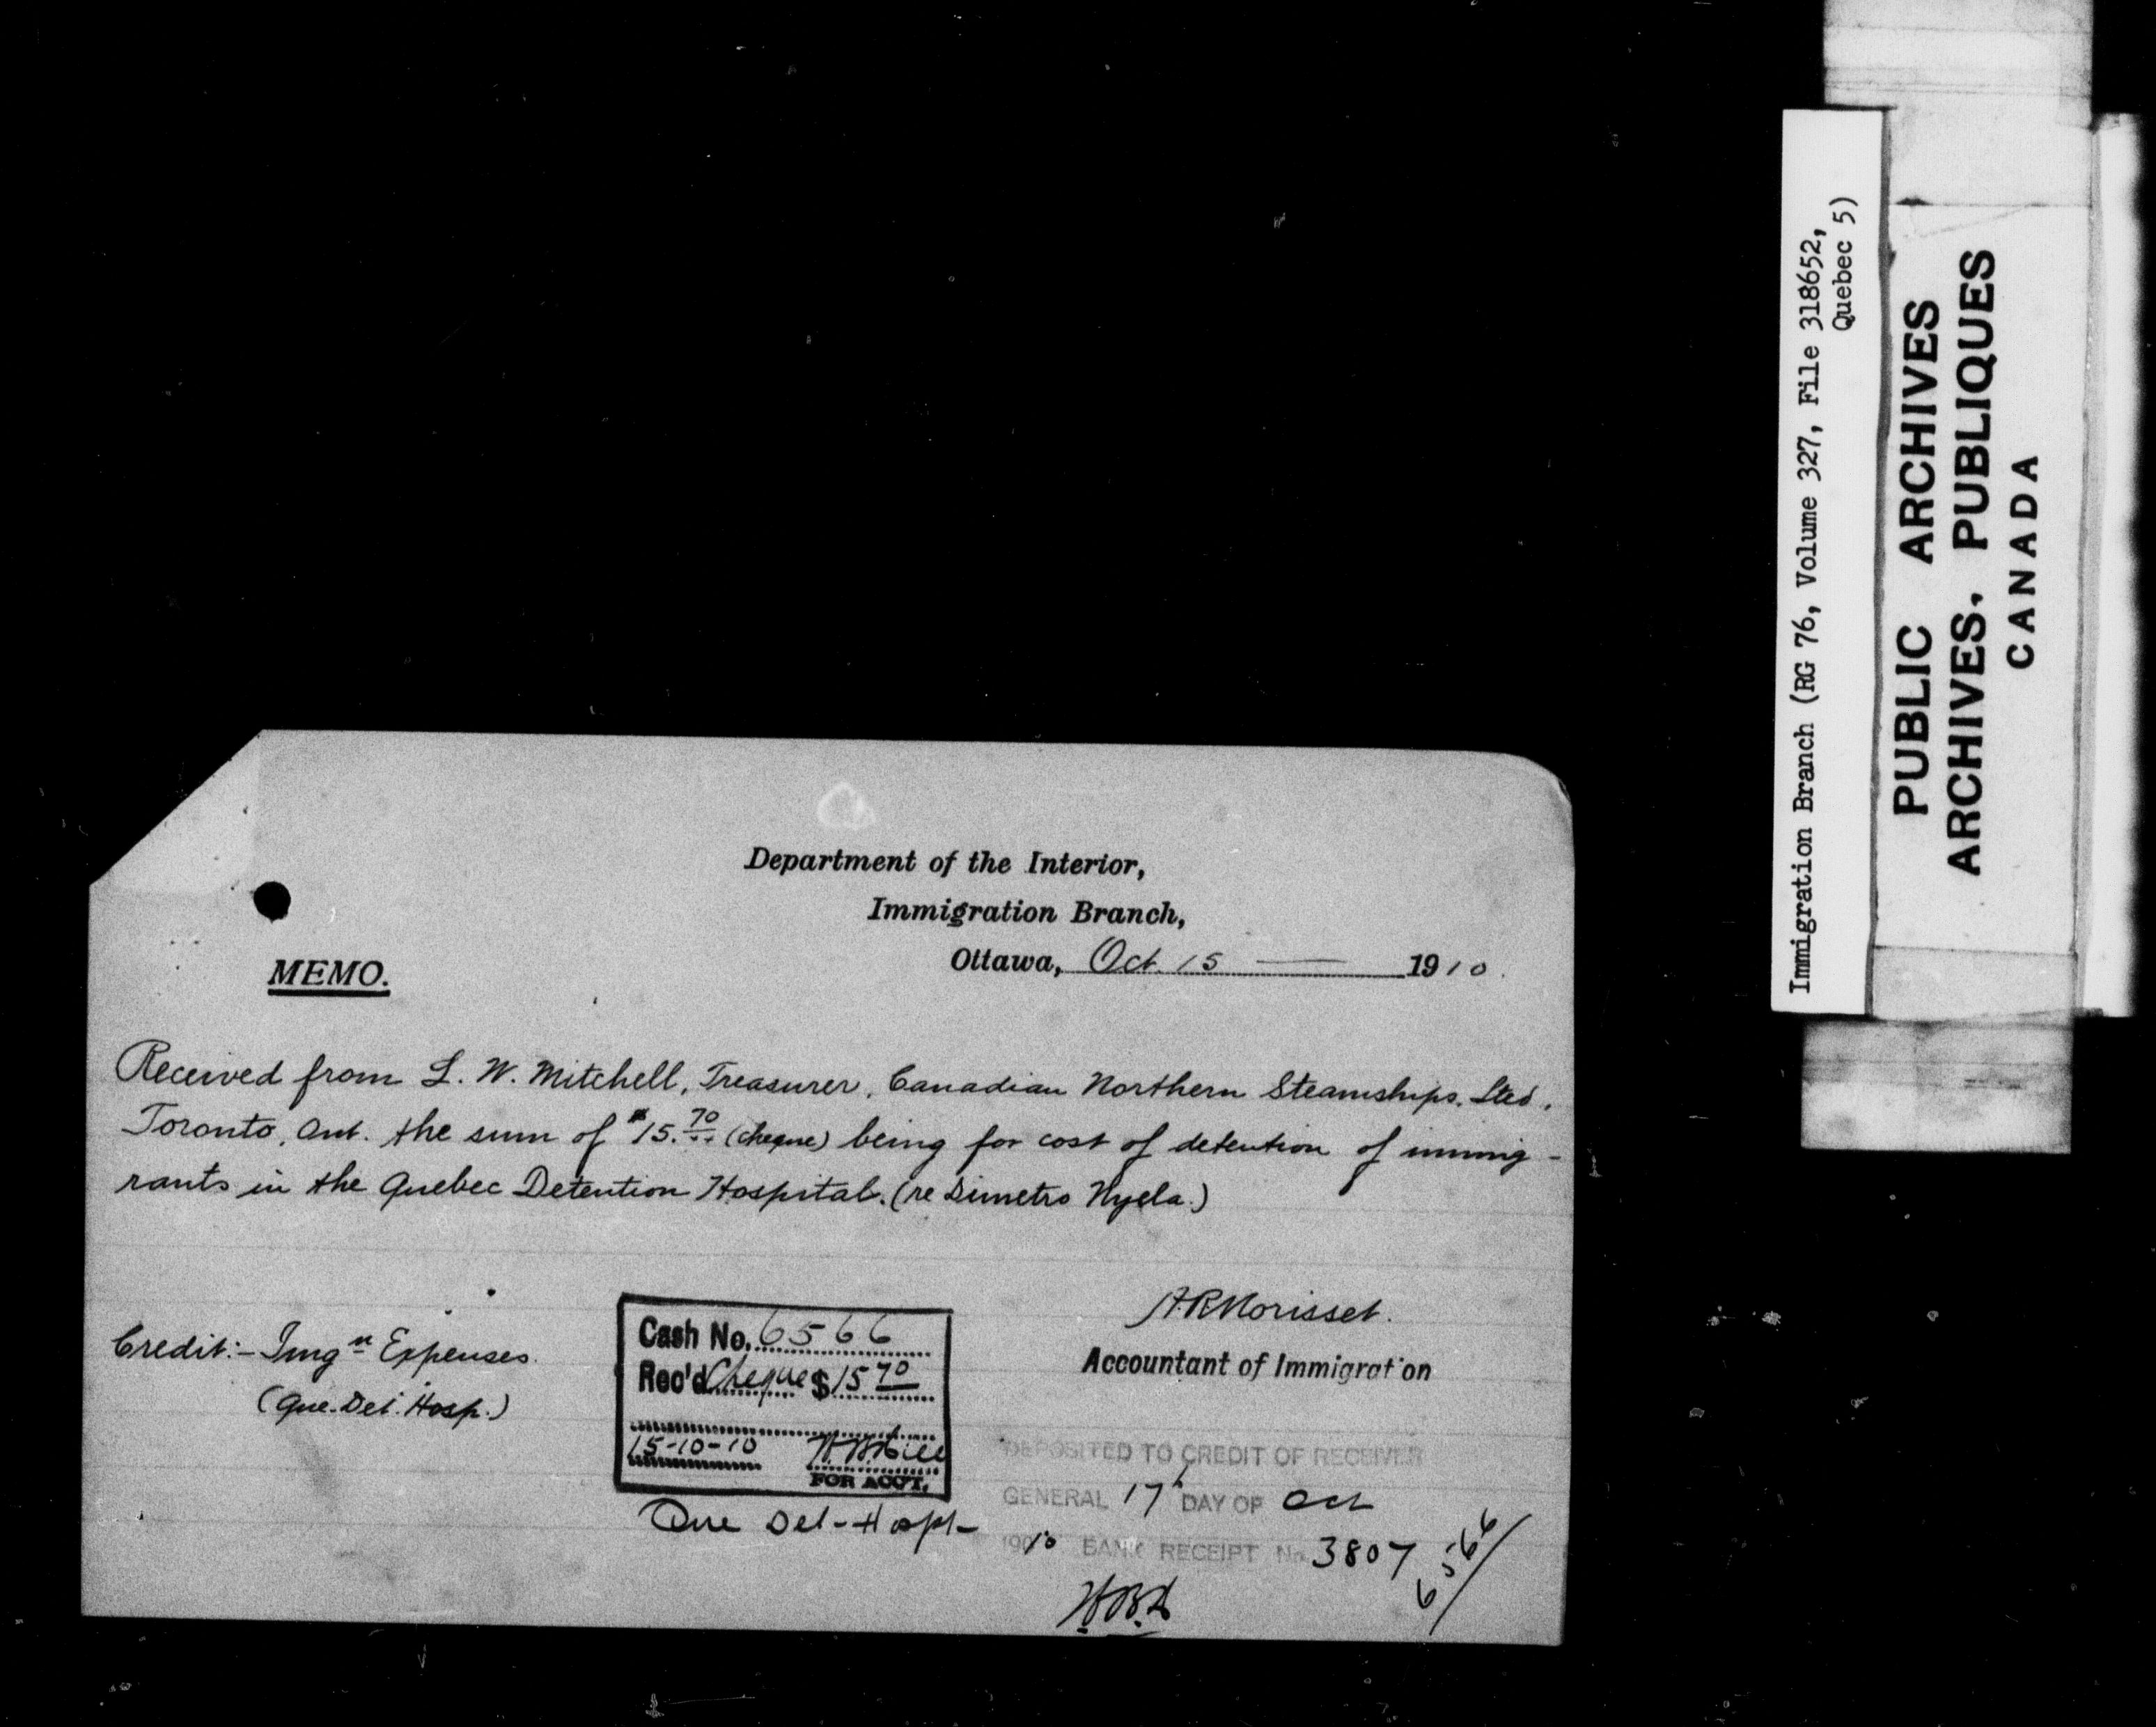 Department of the Interior,
Immigration Branch,
Ottawa, Oct. 15 — 1910.
MEMO.
Received from L. W. Mitchell, Treasurer, Canadian Northern Steamships, Lted.
Toronto, Ont. the sum of $15.70 (cheque) being for cost of detention of immig-
rants in the Quebec Detention Hospital. (re Dimetro Nyela.)
A.R. Morisset.
Accountant of Immigration
Credit:- Imgn Expenses.
(Que. Det. Hosp.)
Cash No. 6566
Rec'd Cheque $15 70
15-10-10
FOR ACCT.
Que Det-Hospl-
DEPOSITED TO CREDIT OF RECEIVER
GENERAL 17 DAY OF Oct
190 10 BANK RECEIPT No. 3807
6566
Immigration Branch (RG 76, Volume 327, File 318652,
Quebec 5)
PUBLIC ARCHIVES
ARCHIVES. PUBLIQUES
CANADA